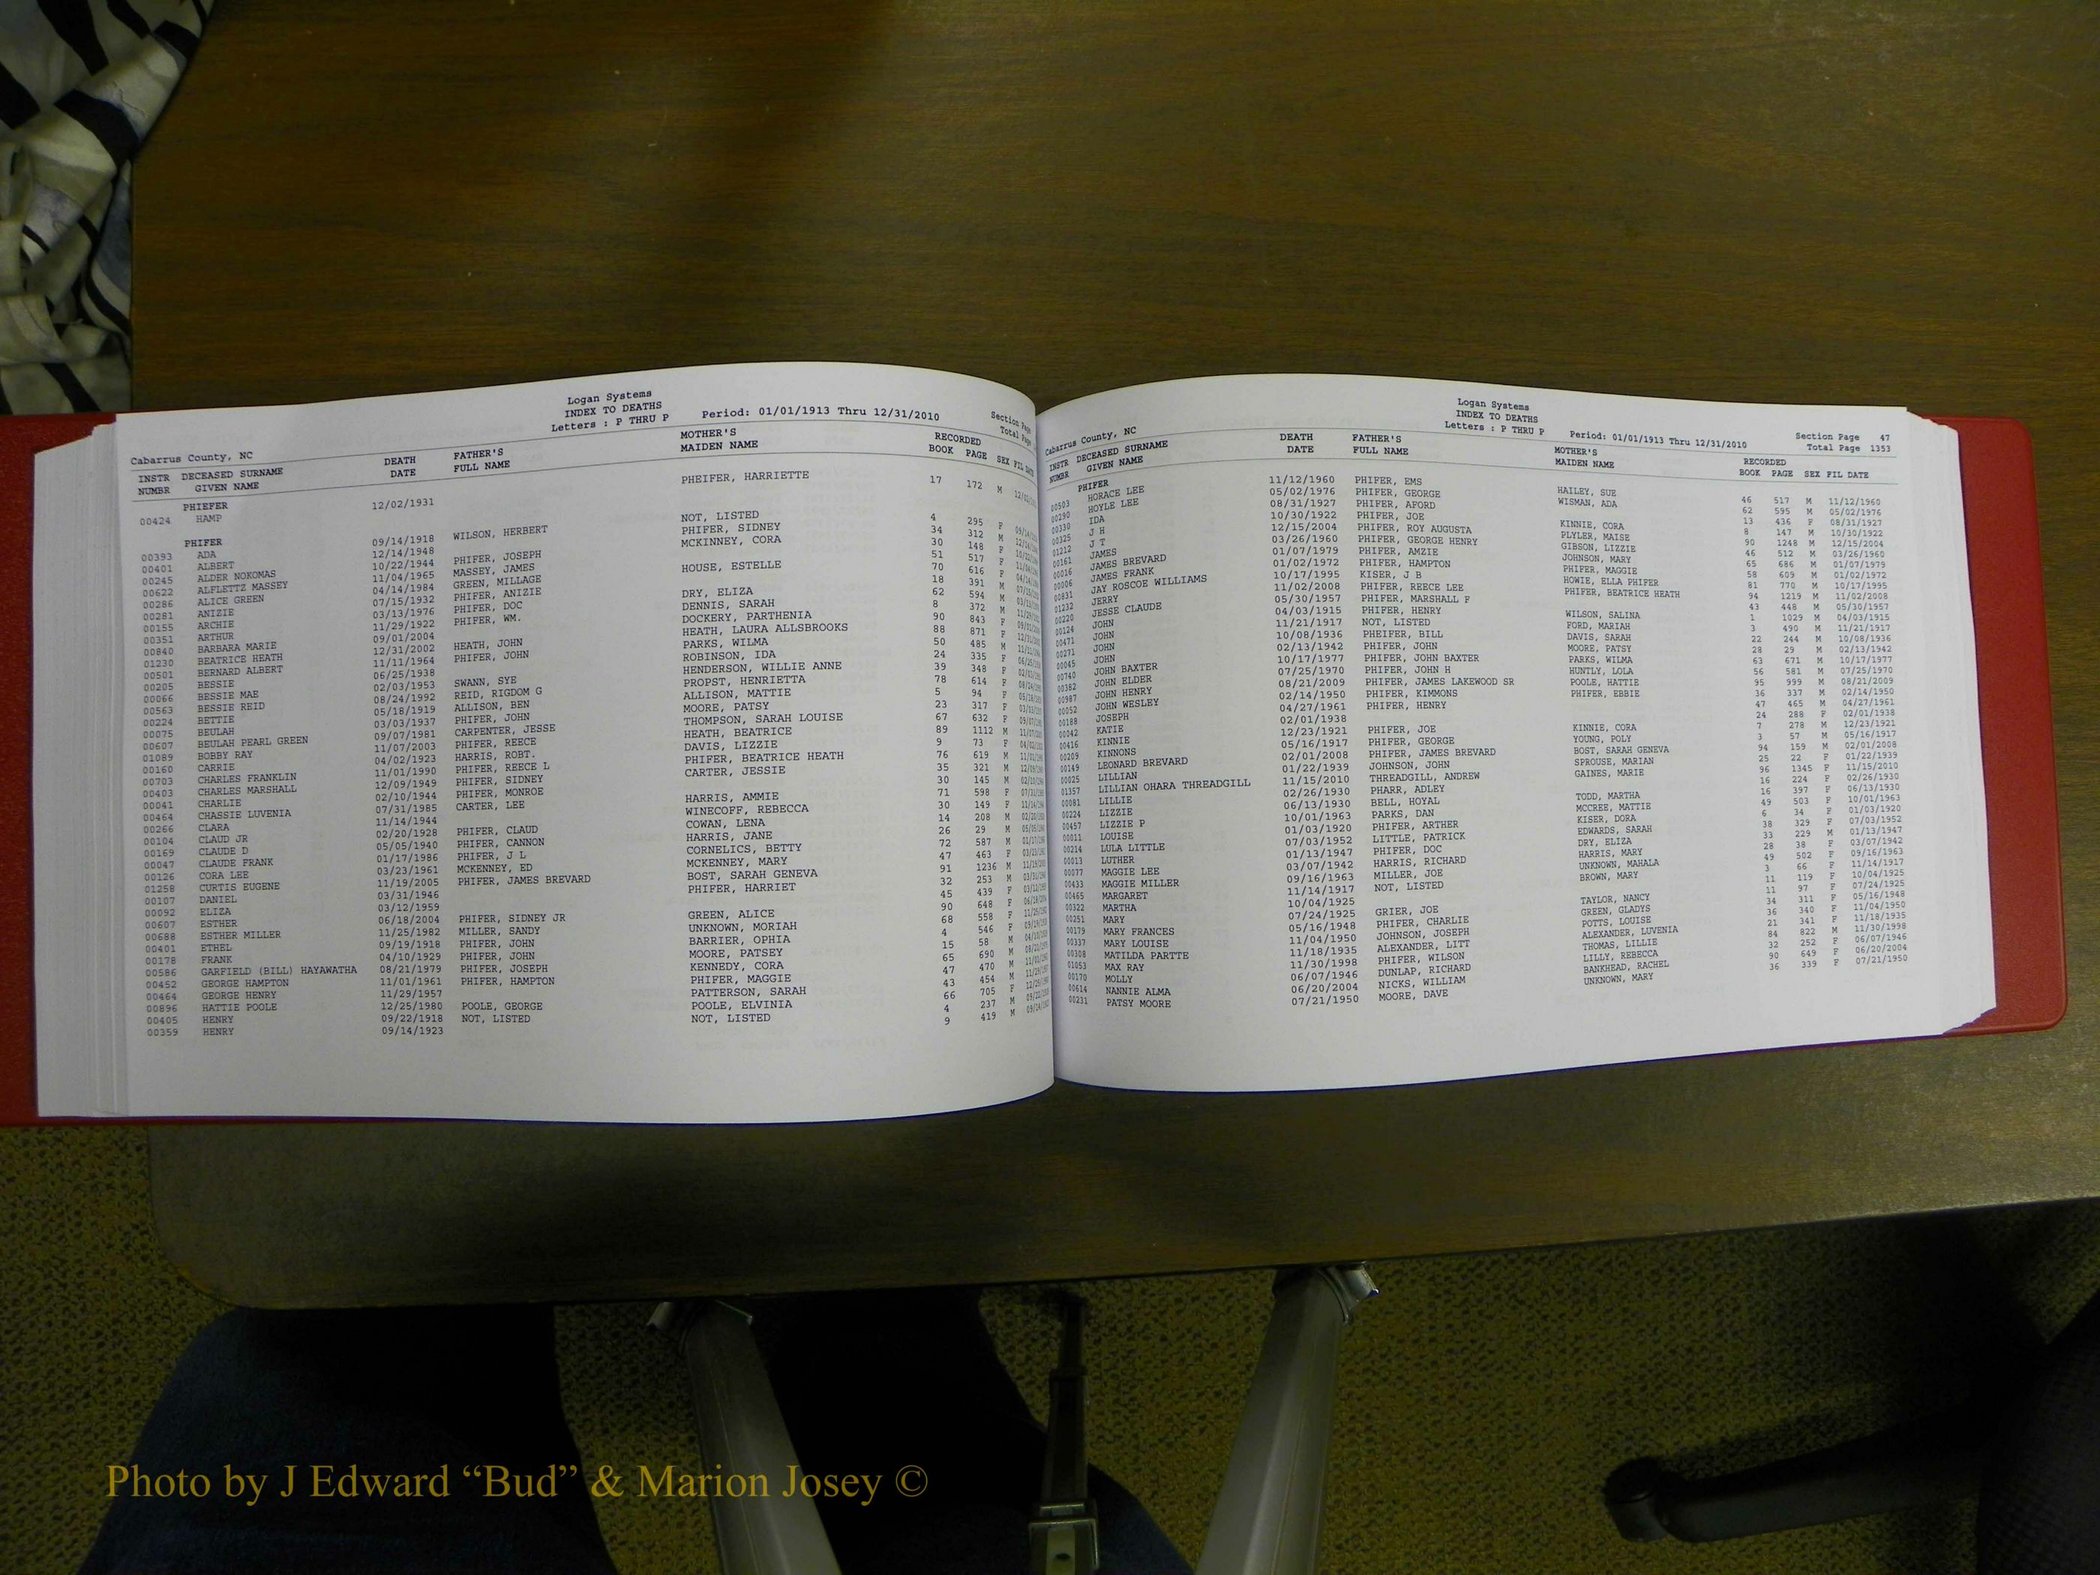 Logan Systems
INDEX TO DEATHS
Letters : P THRU P Period: 01/01/1913 Thru 12/31/2010
Section Page
Total Page
Cabarrus County, NC
INSTR DECEASED SURNAME DEATH FATHER'S MOTHER'S RECORDED
NUMBR GIVEN NAME DATE FULL NAME MAIDEN NAME BOOK PAGE SEX FIL DATE
PHIEFER
00424 HAMP 12/02/1931 PHEIFER, HARRIETTE 17 172 M
PHIFER
00393 ADA 09/14/1918 WILSON, HERBERT NOT, LISTED 4 295 F
00401 ALBERT 12/14/1948 PHIFER, SIDNEY 34 312 M
00245 ALDER NOKOMAS 10/22/1944 PHIFER, JOSEPH MCKINNEY, CORA 30 148 F
00622 ALFLETTZ MASSEY 11/04/1965 MASSEY, JAMES 51 517 F
00286 ALICE GREEN 04/14/1984 GREEN, MILLAGE HOUSE, ESTELLE 70 616 F
00281 ANIZIE 07/15/1932 PHIFER, ANIZIE 18 391 M
00155 ARCHIE 03/13/1976 PHIFER, DOC DRY, ELIZA 62 594 M
00351 ARTHUR 11/29/1922 PHIFER, WM. DENNIS, SARAH 8 372 M
00840 BARBARA MARIE 09/01/2004 DOCKERY, PARTHENIA 90 843 F
01230 BEATRICE HEATH 12/31/2002 HEATH, JOHN HEATH, LAURA ALLSBROOKS 88 871 F
00501 BERNARD ALBERT 11/11/1964 PHIFER, JOHN PARKS, WILMA 50 485 M
00205 BESSIE 06/25/1938 ROBINSON, IDA 24 335 F
00066 BESSIE MAE 02/03/1953 SWANN, SYE HENDERSON, WILLIE ANNE 39 348 F
00563 BESSIE REID 08/24/1992 REID, RIGDOM G PROPST, HENRIETTA 78 614 F
00224 BETTIE 05/18/1919 ALLISON, BEN ALLISON, MATTIE 5 94 F
00075 BEULAH 03/03/1937 PHIFER, JOHN MOORE, PATSY 23 317 F
00607 BEULAH PEARL GREEN 09/07/1981 CARPENTER, JESSE THOMPSON, SARAH LOUISE 67 632 F
01089 BOBBY RAY 11/07/2003 PHIFER, REECE HEATH, BEATRICE 89 1112 M
00160 CARRIE 04/02/1923 HARRIS, ROBT. DAVIS, LIZZIE 9 73 F
00703 CHARLES FRANKLIN 11/01/1990 PHIFER, REECE L PHIFER, BEATRICE HEATH 76 619 M
00403 CHARLES MARSHALL 12/09/1949 PHIFER, SIDNEY CARTER, JESSIE 35 321 M
00041 CHARLIE 02/10/1944 PHIFER, MONROE 30 145 M
00464 CHASSIE LUVENIA 07/31/1985 CARTER, LEE HARRIS, AMMIE 71 598 F
00266 CLARA 11/14/1944 WINECOFF, REBECCA 30 149 F
00104 CLAUD JR 02/20/1928 PHIFER, CLAUD COWAN, LENA 14 208 M
00169 CLAUDE D 05/05/1940 PHIFER, CANNON HARRIS, JANE 26 29 M
00047 CLAUDE FRANK 01/17/1986 PHIFER, J L CORNELICS, BETTY 72 587 M
00126 CORA LEE 03/23/1961 MCKENNEY, ED MCKENNEY, MARY 47 463 F
01258 CURTIS EUGENE 11/19/2005 PHIFER, JAMES BREVARD BOST, SARAH GENEVA 91 1236 M
00107 DANIEL 03/31/1946 PHIFER, HARRIET 32 253 M
00092 ELIZA 03/12/1959 45 439 F
00607 ESTHER 06/18/2004 PHIFER, SIDNEY JR GREEN, ALICE 90 648 F
00688 ESTHER MILLER 11/25/1982 MILLER, SANDY UNKNOWN, MORIAH 68 558 F
00401 ETHEL 09/19/1918 PHIFER, JOHN BARRIER, OPHIA 4 546 F
00178 FRANK 04/10/1929 PHIFER, JOHN MOORE, PATSEY 15 58 M
00586 GARFIELD (BILL) HAYAWATHA 08/21/1979 PHIFER, JOSEPH KENNEDY, CORA 65 690 M
00452 GEORGE HAMPTON 11/01/1961 PHIFER, HAMPTON PHIFER, MAGGIE 47 470 M
00464 GEORGE HENRY 11/29/1957 PATTERSON, SARAH 43 454 M
00896 HATTIE POOLE 12/25/1980 POOLE, GEORGE POOLE, ELVINIA 66 705 F
00405 HENRY 09/22/1918 NOT, LISTED NOT, LISTED 4 237 M
00359 HENRY 09/14/1923 9 419 M
Logan Systems
INDEX TO DEATHS
Letters : P THRU P Period: 01/01/1913 Thru 12/31/2010
Section Page 47
Total Page 1353
Cabarrus County, NC
INSTR DECEASED SURNAME DEATH FATHER'S MOTHER'S RECORDED
NUMBR GIVEN NAME DATE FULL NAME MAIDEN NAME BOOK PAGE SEX FIL DATE
PHIFER
00503 HORACE LEE 11/12/1960 PHIFER, EMS HAILEY, SUE 46 517 M 11/12/1960
00290 HOYLE LEE 05/02/1976 PHIFER, GEORGE WISMAN, ADA 62 595 M 05/02/1976
00330 IDA 08/31/1927 PHIFER, AFORD 13 436 F 08/31/1927
00325 J H 10/30/1922 PHIFER, JOE KINNIE, CORA 8 147 M 10/30/1922
01212 J T 12/15/2004 PHIFER, ROY AUGUSTA PLYLER, MAISE 90 1248 M 12/15/2004
00161 JAMES 03/26/1960 PHIFER, GEORGE HENRY GIBSON, LIZZIE 46 512 M 03/26/1960
00016 JAMES BREVARD 01/07/1979 PHIFER, AMZIE JOHNSON, MARY 65 686 M 01/07/1979
00006 JAMES FRANK 01/02/1972 PHIFER, HAMPTON PHIFER, MAGGIE 58 609 M 01/02/1972
00831 JAY ROSCOE WILLIAMS 10/17/1995 KISER, J B HOWIE, ELLA PHIFER 81 770 M 10/17/1995
01232 JERRY 11/02/2008 PHIFER, REECE LEE PHIFER, BEATRICE HEATH 94 1219 M 11/02/2008
00220 JESSE CLAUDE 05/30/1957 PHIFER, MARSHALL F 43 448 M 05/30/1957
00124 JOHN 04/03/1915 PHIFER, HENRY WILSON, SALINA 1 1029 M 04/03/1915
00471 JOHN 11/21/1917 NOT, LISTED FORD, MARIAH 3 490 M 11/21/1917
00271 JOHN 10/08/1936 PHEIFER, BILL DAVIS, SARAH 22 244 M 10/08/1936
00045 JOHN 02/13/1942 PHIFER, JOHN MOORE, PATSY 28 29 M 02/13/1942
00740 JOHN BAXTER 10/17/1977 PHIFER, JOHN BAXTER PARKS, WILMA 63 671 M 10/17/1977
00382 JOHN ELDER 07/25/1970 PHIFER, JOHN H HUNTLY, LOLA 56 581 M 07/25/1970
00987 JOHN HENRY 08/21/2009 PHIFER, JAMES LAKEWOOD SR POOLE, HATTIE 95 999 M 08/21/2009
00052 JOHN WESLEY 02/14/1950 PHIFER, KIMMONS PHIFER, EBBIE 36 337 M 02/14/1950
00188 JOSEPH 04/27/1961 PHIFER, HENRY 47 465 M 04/27/1961
00042 KATIE 02/01/1938 24 288 F 02/01/1938
00416 KINNIE 12/23/1921 PHIFER, JOE KINNIE, CORA 7 278 M 12/23/1921
00209 KINNONS 05/16/1917 PHIFER, GEORGE YOUNG, POLY 3 57 M 05/16/1917
00149 LEONARD BREVARD 02/01/2008 PHIFER, JAMES BREVARD BOST, SARAH GENEVA 94 159 M 02/01/2008
00025 LILLIAN 01/22/1939 JOHNSON, JOHN SPROUSE, MARIAN 25 22 F 01/22/1939
01357 LILLIAN OHARA THREADGILL 11/15/2010 THREADGILL, ANDREW GAINES, MARIE 96 1345 F 11/15/2010
00081 LILLIE 02/26/1930 PHARR, ADLEY 16 224 F 02/26/1930
00224 LIZZIE 06/13/1930 BELL, HOYAL TODD, MARTHA 16 397 F 06/13/1930
00457 LIZZIE P 10/01/1963 PARKS, DAN MCCREE, MATTIE 49 503 F 10/01/1963
00011 LOUISE 01/03/1920 PHIFER, ARTHER KISER, DORA 6 34 F 01/03/1920
00214 LULA LITTLE 07/03/1952 LITTLE, PATRICK EDWARDS, SARAH 38 329 F 07/03/1952
00013 LUTHER 01/13/1947 PHIFER, DOC DRY, ELIZA 33 229 M 01/13/1947
00077 MAGGIE LEE 03/07/1942 HARRIS, RICHARD HARRIS, MARY 28 38 F 03/07/1942
00433 MAGGIE MILLER 09/16/1963 MILLER, JOE UNKNOWN, MAHALA 49 502 F 09/16/1963
00465 MARGARET 11/14/1917 NOT, LISTED BROWN, MARY 3 66 F 11/14/1917
00322 MARTHA 10/04/1925 11 119 F 10/04/1925
00251 MARY 07/24/1925 GRIER, JOE TAYLOR, NANCY 11 97 F 07/24/1925
00179 MARY FRANCES 05/16/1948 PHIFER, CHARLIE GREEN, GLADYS 34 311 F 05/16/1948
00337 MARY LOUISE 11/04/1950 JOHNSON, JOSEPH POTTS, LOUISE 36 340 F 11/04/1950
00308 MATILDA PARTTE 11/18/1935 ALEXANDER, LITT ALEXANDER, LUVENIA 21 341 F 11/18/1935
01053 MAX RAY 11/30/1998 PHIFER, WILSON THOMAS, LILLIE 84 822 M 11/30/1998
00170 MOLLY 06/07/1946 DUNLAP, RICHARD LILLY, REBECCA 32 252 F 06/07/1946
00614 NANNIE ALMA 06/20/2004 NICKS, WILLIAM BANKHEAD, RACHEL 90 649 F 06/20/2004
00231 PATSY MOORE 07/21/1950 MOORE, DAVE UNKNOWN, MARY 36 339 F 07/21/1950
Photo by J Edward “Bud” & Marion Josey ©